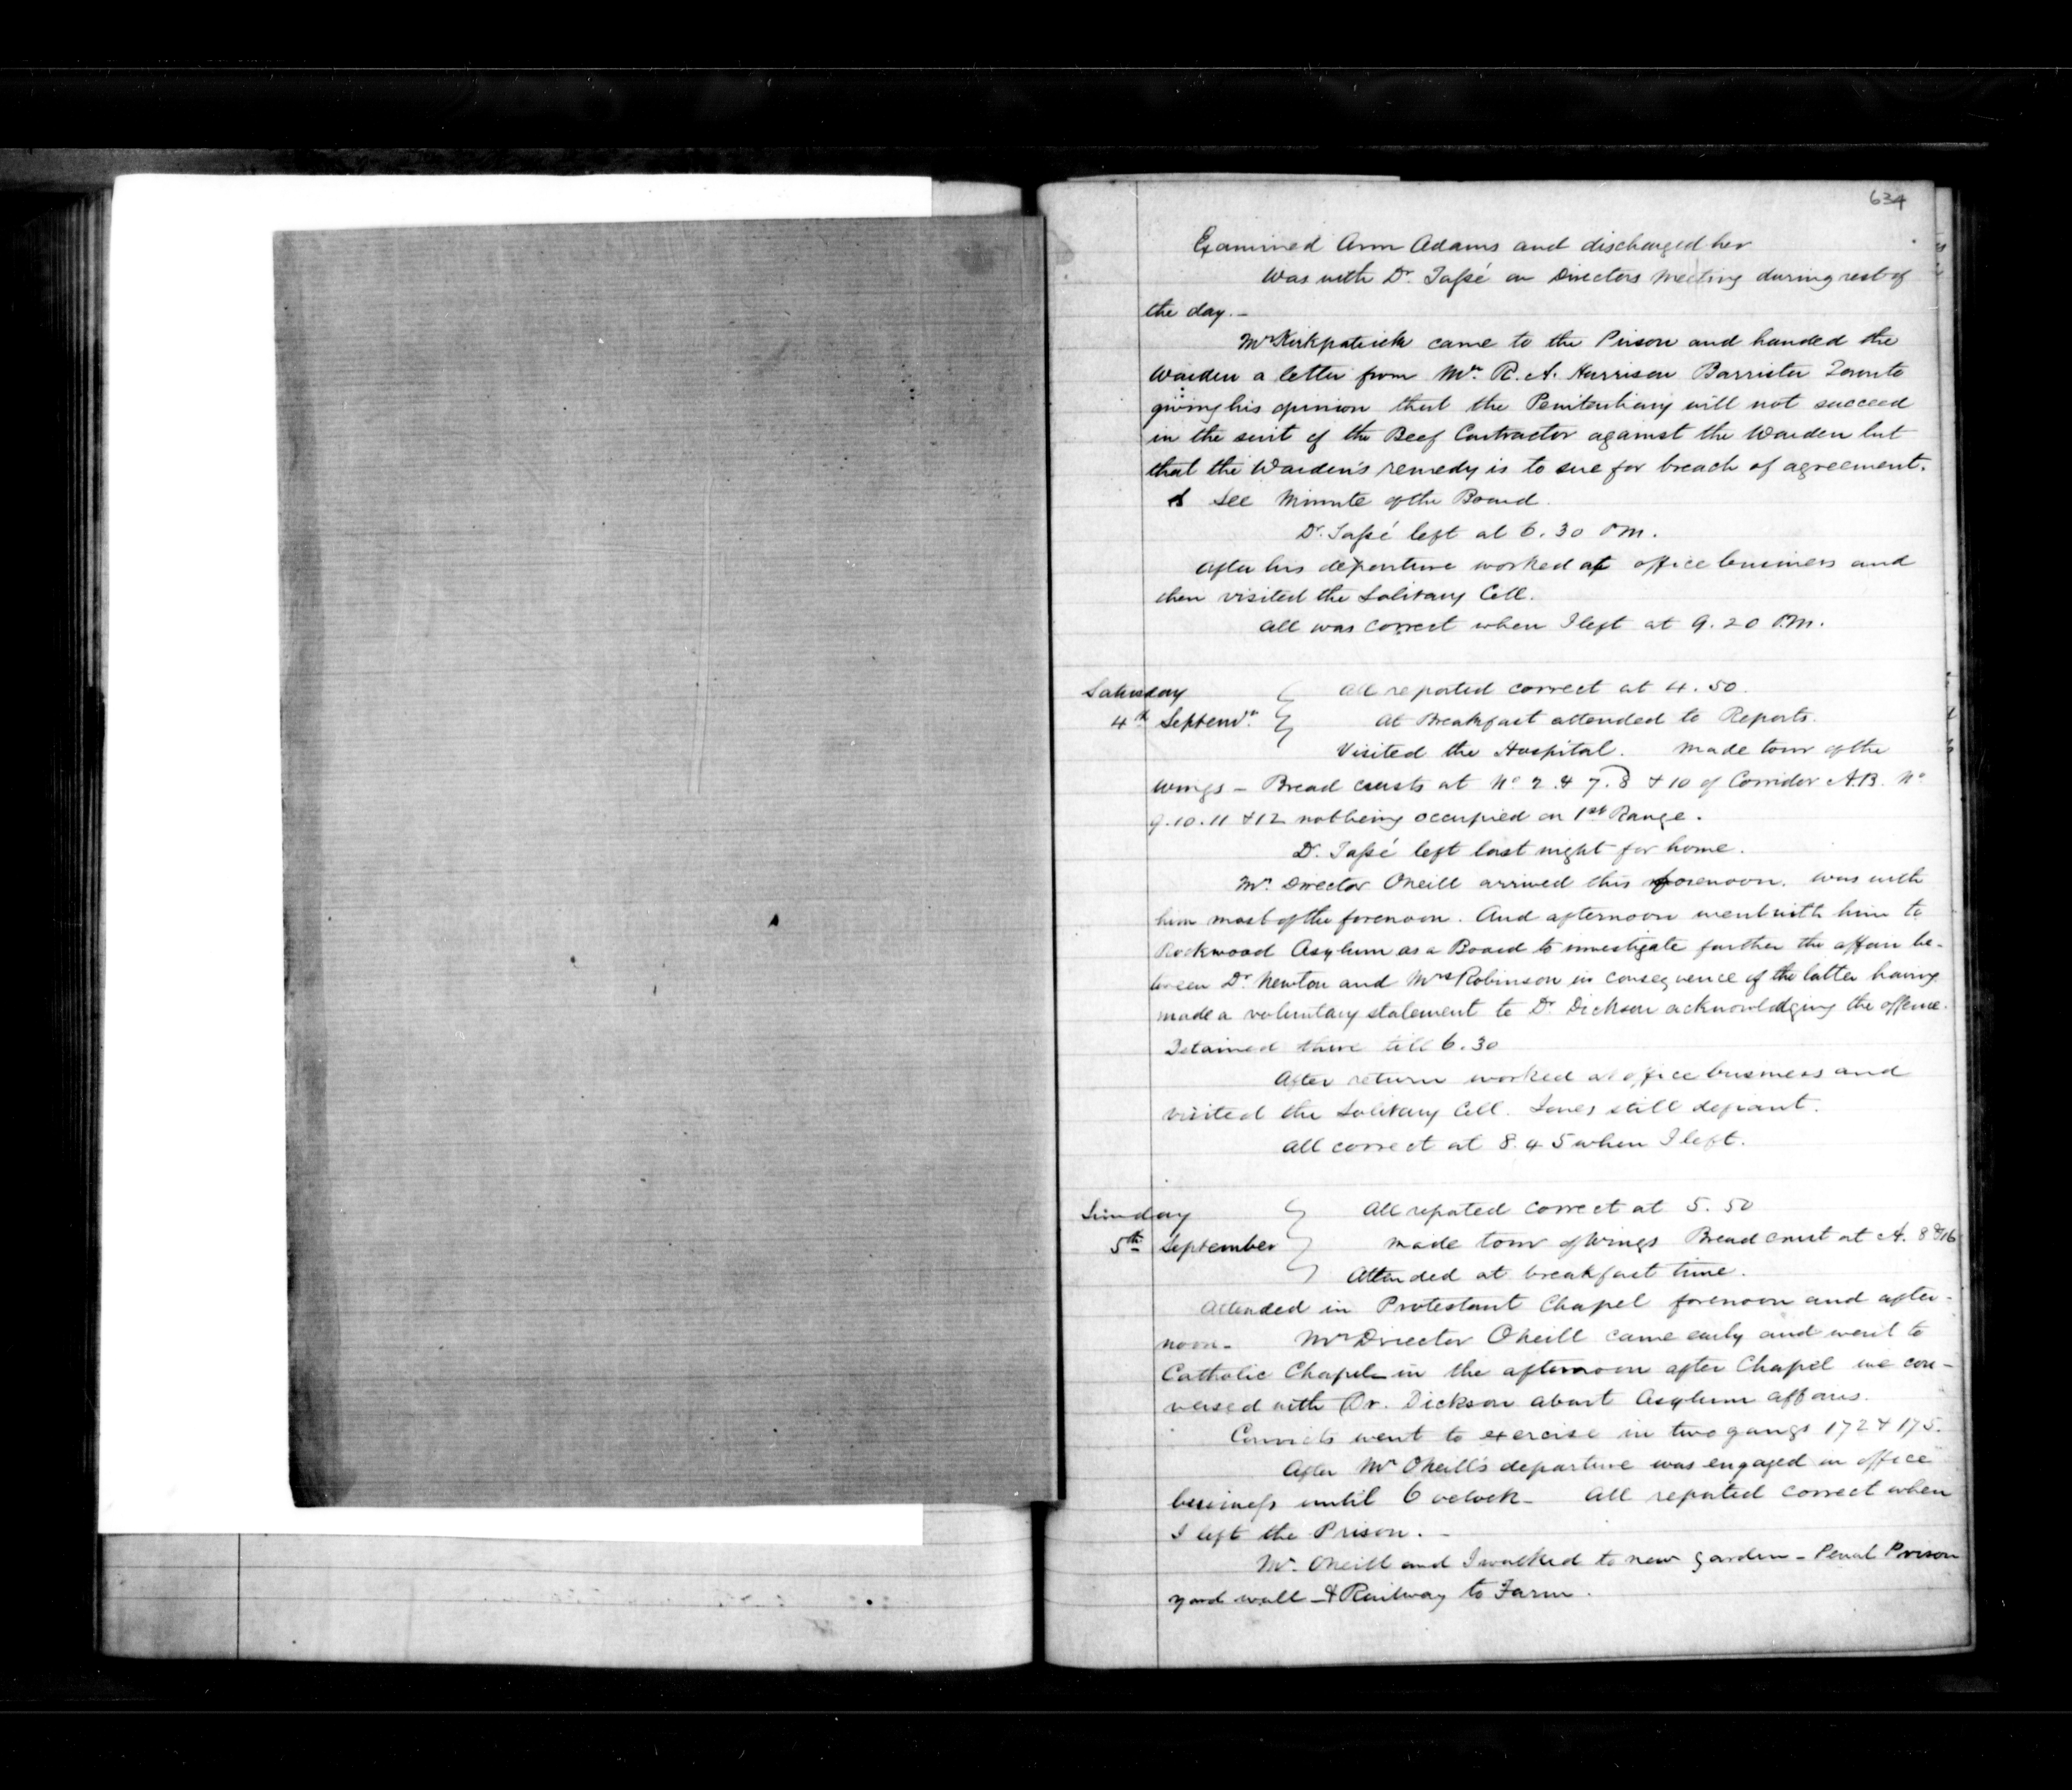 634
Examined Ann Adams and discharged her
Was with Dr. Tassé on Directors Meeting during rest of
the day. —
Mr Kirkpatrick came to the Prison and handed the
Warden a letter from Mr. R. A. Harrison Barrister Toronto
giving his opinion that the Penitentiary will not succeed
in the suit of the Beef Contractor against the Warden but
that the Warden's remedy is to sue for breach of agreement.
See Minute of the Board.
Dr. Tassé left at 6.30 P.M.
After his departure worked at office business and
then visited the Solitary Cell.
All was correct when I left at 9.20 P.M.
Saturday
4th Septemr.
All reported correct at 4.50.
At Breakfast attended to Reports.
Visited the Hospital. Made tour of the
wings — Bread crusts at No 2. 4 7. 8 & 10 of Corridor A.B. No
9. 10. 11 & 12 not being occupied on 1st Range.
Dr. Tassé left last night for home.
Mr. Director Oneill arrived this forenoon. Was with
him most of the forenoon. And afternoon went with him to
Rockwood Asylum as a Board to investigate further the affair be-
tween Dr. Newton and Mrs Robinson in consequence of the latter having
made a voluntary statement to Dr. Dickson acknowledging the offence.
Detained there till 6.30
After return worked at office business and
visited the Solitary Cell. Jones still defiant.
All correct at 8.45 when I left.
Sunday
5th September
All reported correct at 5.50
Made tour of Wings Bread crust at A. 8 & 16
Attended at breakfast time.
Attended in Protestant Chapel forenoon and after-
noon — Mr Director Oneill came early and went to
Catholic Chapel — in the afternoon after Chapel we con-
versed with Dr. Dickson about Asylum affairs.
Convicts went to exercise in two gangs 172 & 175.
After Mr Oneill's departure was engaged on office
business until 6 oclock — All reported correct when
I left the Prison. —
Mr. Oneill and I walked to new garden — Penal Prison
yard wall — & Railway to Farm.